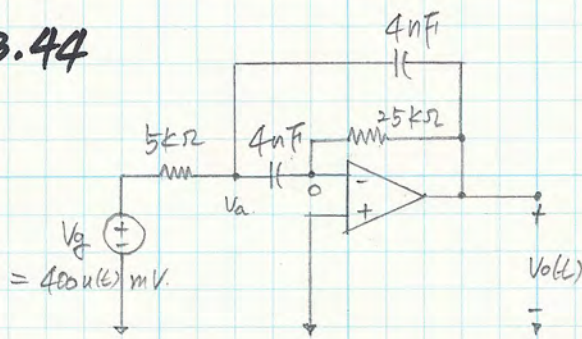 3.44
4nF
25kΩ
5kΩ
4nF
Va.
0
-
+
Vg
+
-
= 400u(t) mV.
+
Vo(t)
-